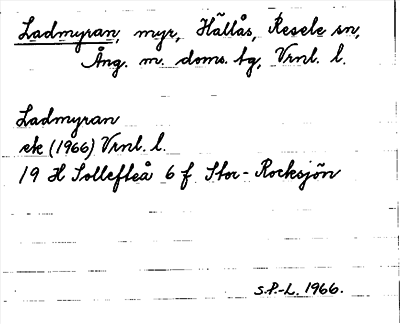 Ladmyran, myr, Hällås, Resele sn,
Ång. m. doms. tg, Vrnl. l.
Ladmyran
ek (1966) Vrnl. l.
19 H Sollefteå 6 f Stor-Rocksjön
S.P.-L. 1966.